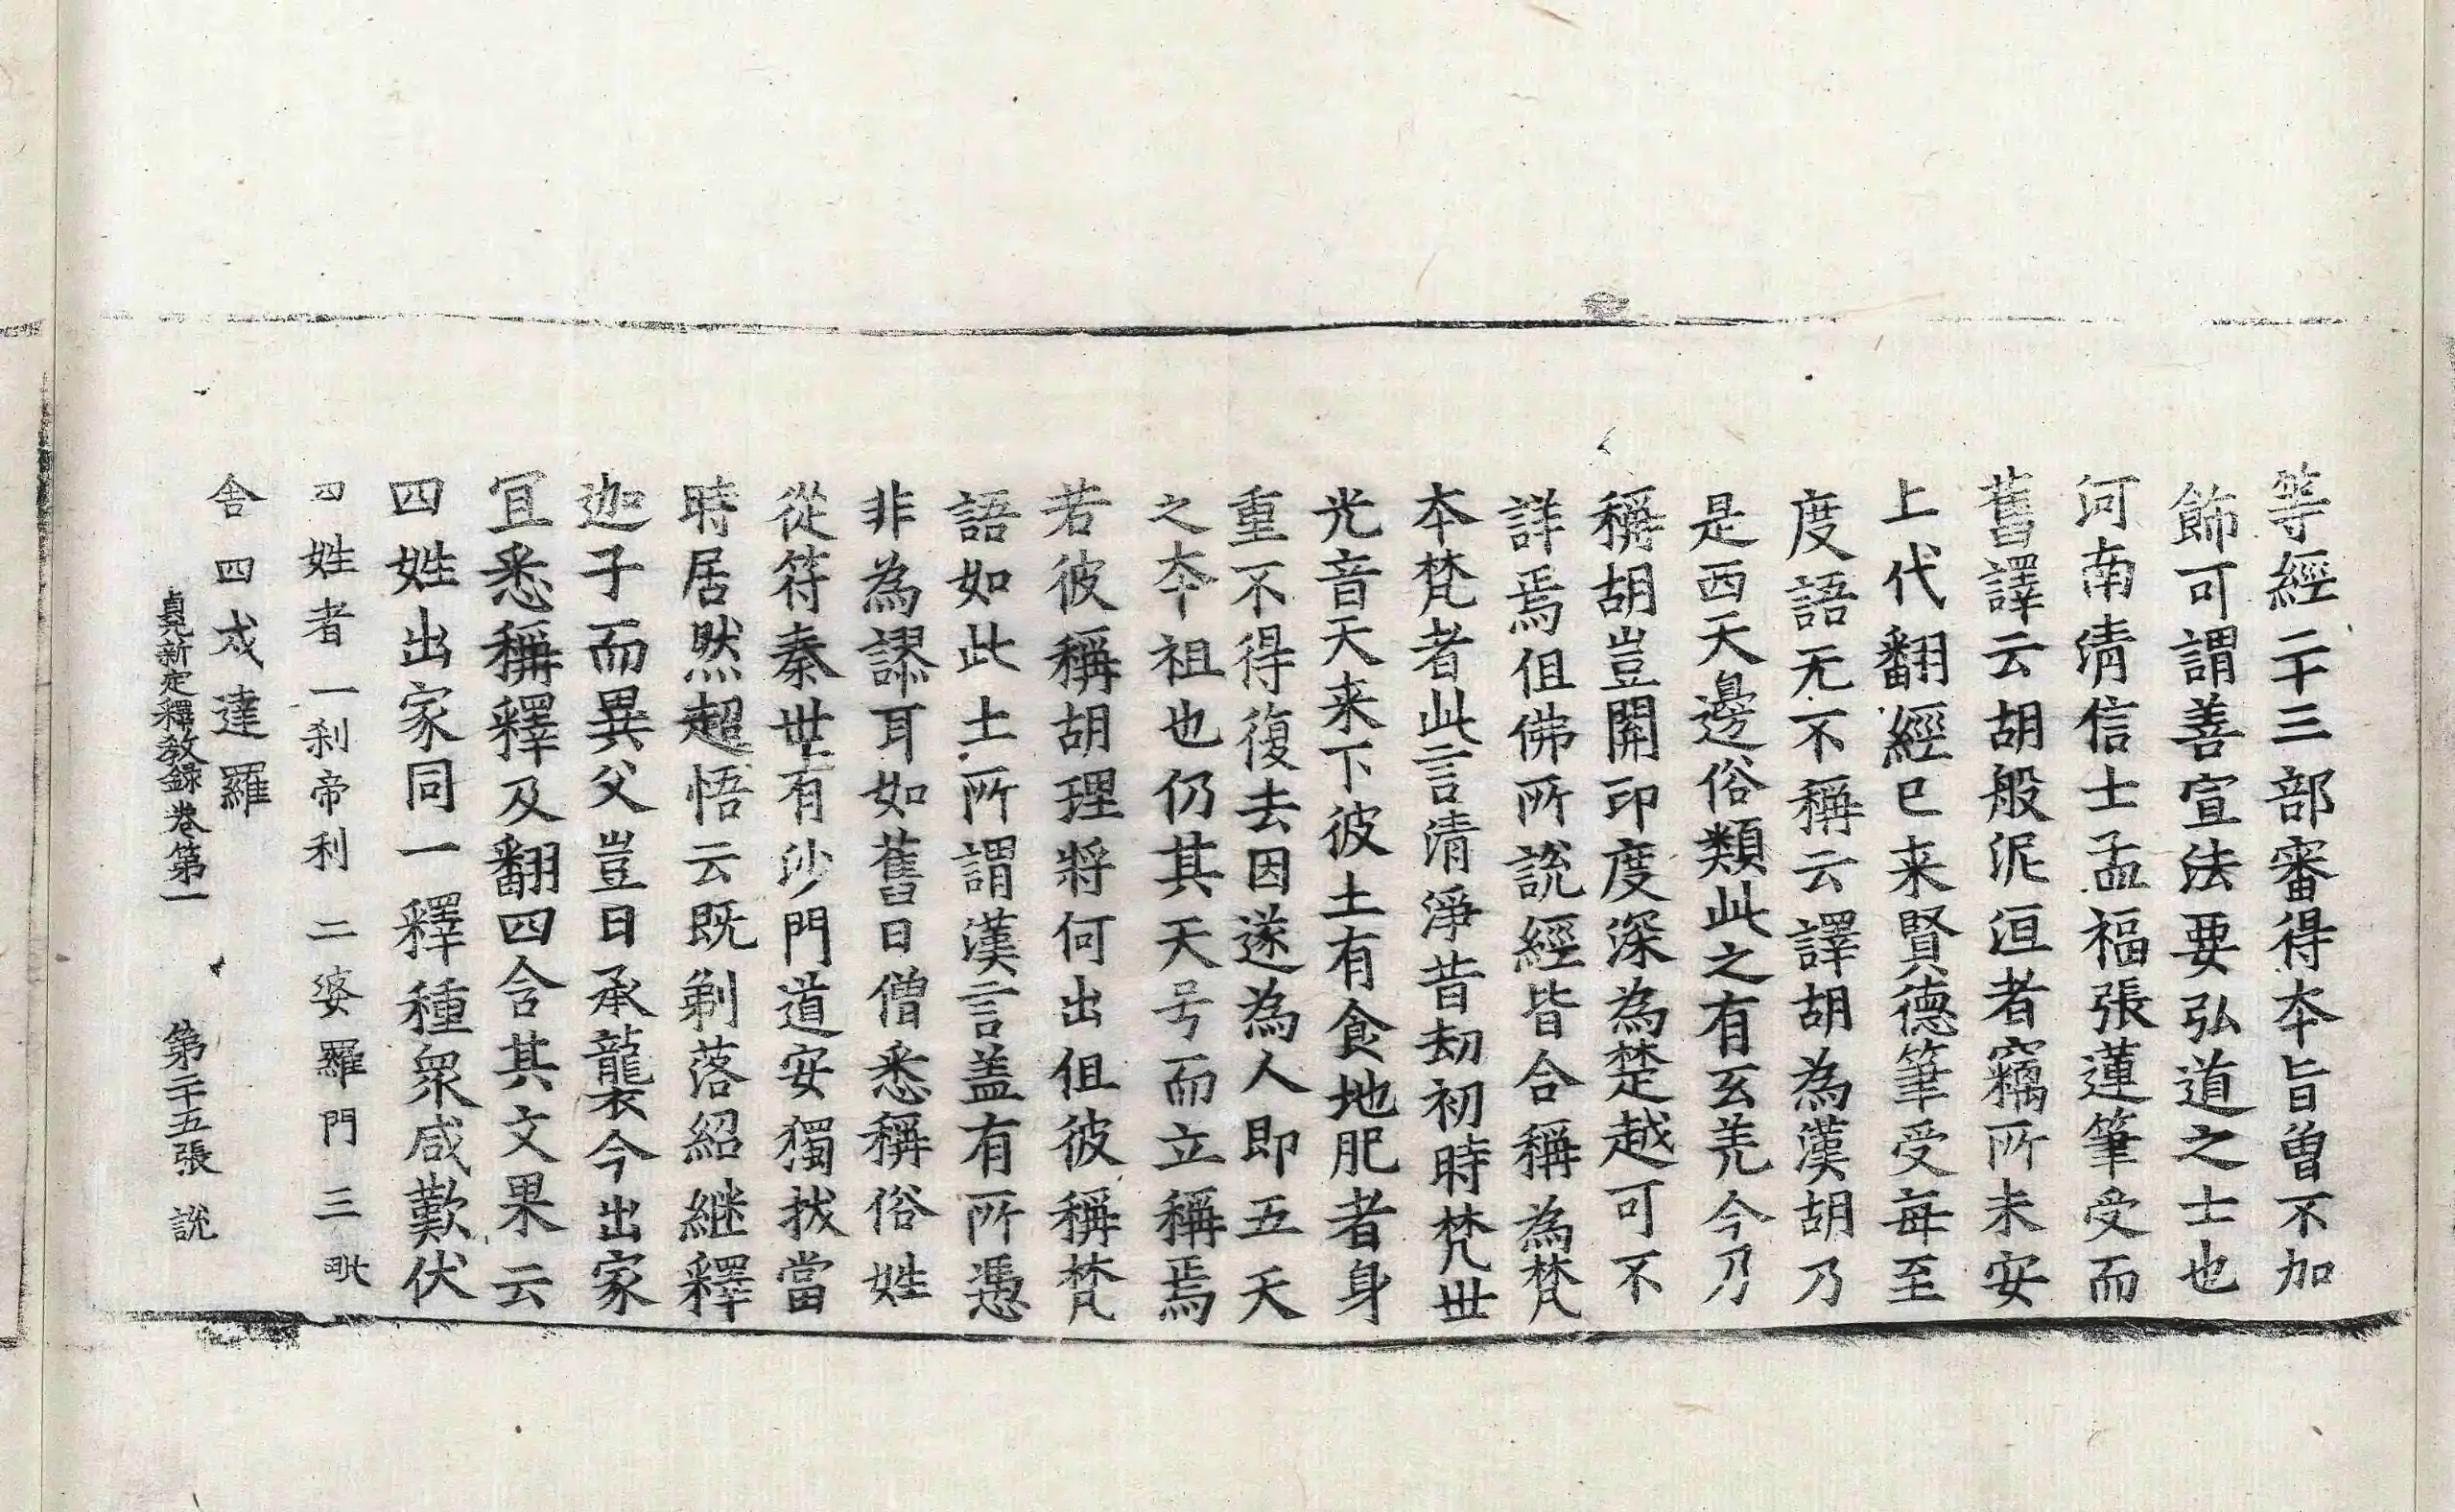 等經二十三部審得夲旨曽不加
飾可謂善宣法要弘道之士也
河南清信士孟福張蓮筆受而
舊譯云胡般泥洹者竊所未安
上代翻經已来賢德筆受每至
度語无不稱云譯胡為漢胡乃
是西天邊俗類此之有玄羌今乃
稱胡豈開印度深為楚越可不
詳焉伹佛所說經皆合稱為梵
夲梵者此言清淨昔刧初時梵世
光音天来下彼土有食地肥者身
重不得復去因遂為人即五天
之夲祖也仍其天号而立稱焉
若彼稱胡理將何出伹彼稱梵
語如此土所謂漢言盖有所憑
非為謬耳如舊日僧悉稱俗姓
從符秦世有沙門道安獨拔當
時居然超悟云既剃落紹継釋
迦子而異父豈曰承襲今出家
冝悉稱釋及翻四含其文果云
四姓出家同一釋種衆咸歎伏
四姓者一刹帝利 二婆羅門 三毗
舍 四戍達羅
貞元新定釋教録卷第一 第二十五張 說